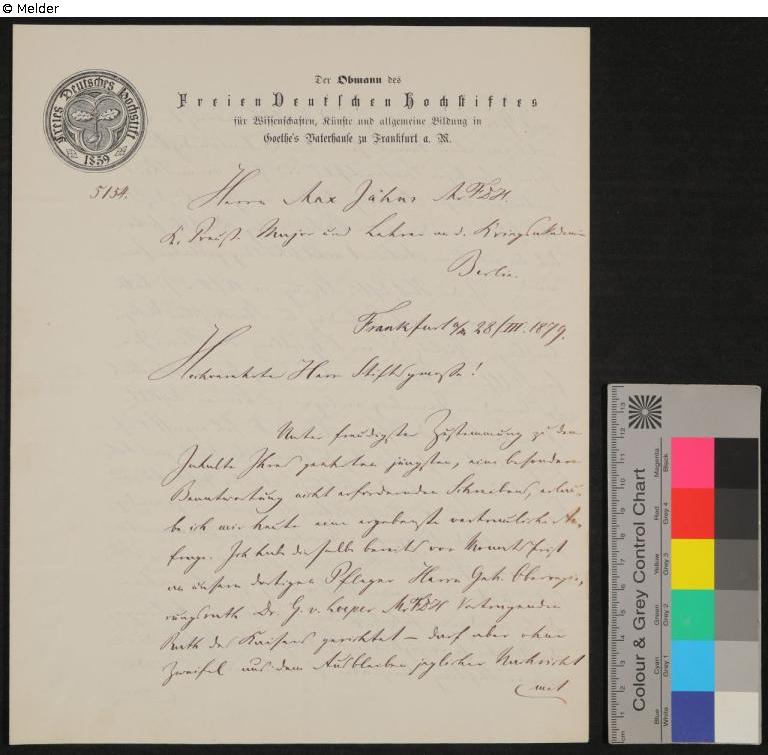 © Melder
Freies Deutsches Hochstift
1859
Der Obmann des
Freien Deutschen Hochstiftes
für Wissenschaften, Künste und allgemeine Bildung in
Goethe's Vaterhause zu Frankfurt a. M.
5134.
Herrn Max Jähns MrFDH.
K. Preuß. Major und Lehrer an d. Kriegsakademie
Berlin.
Frankfurt a/M 28/III. 1879.
Hochverehrter Herr Stiftsgenosse!
Unter freudigster Zustimmung zu dem
Inhalte Ihres geehrten jüngsten, eine besondere
Beantwortung nicht erfordernden Schreibens, erlau-
be ich mir heute eine ergebenste vertrauliche An-
frage. Ich habe dieselbe bereits vor Monatsfrist
an unsern dortigen Pfleger Herrn Geh. Oberregie-
rungsrath Dr. G. v. Loeper MrFDH Vortragenden
Rath des Kaisers gerichtet – darf aber ohne
Zweifel aus dem Ausbleiben jeglicher Nachricht
mit
Colour & Grey Control Chart
Blue Cyan Green Yellow Red Magenta
White Grey 1 Grey 2 Grey 3 Grey 4 Black
cm 1 2 3 4 5 6 7 8 9 10 11 12 13